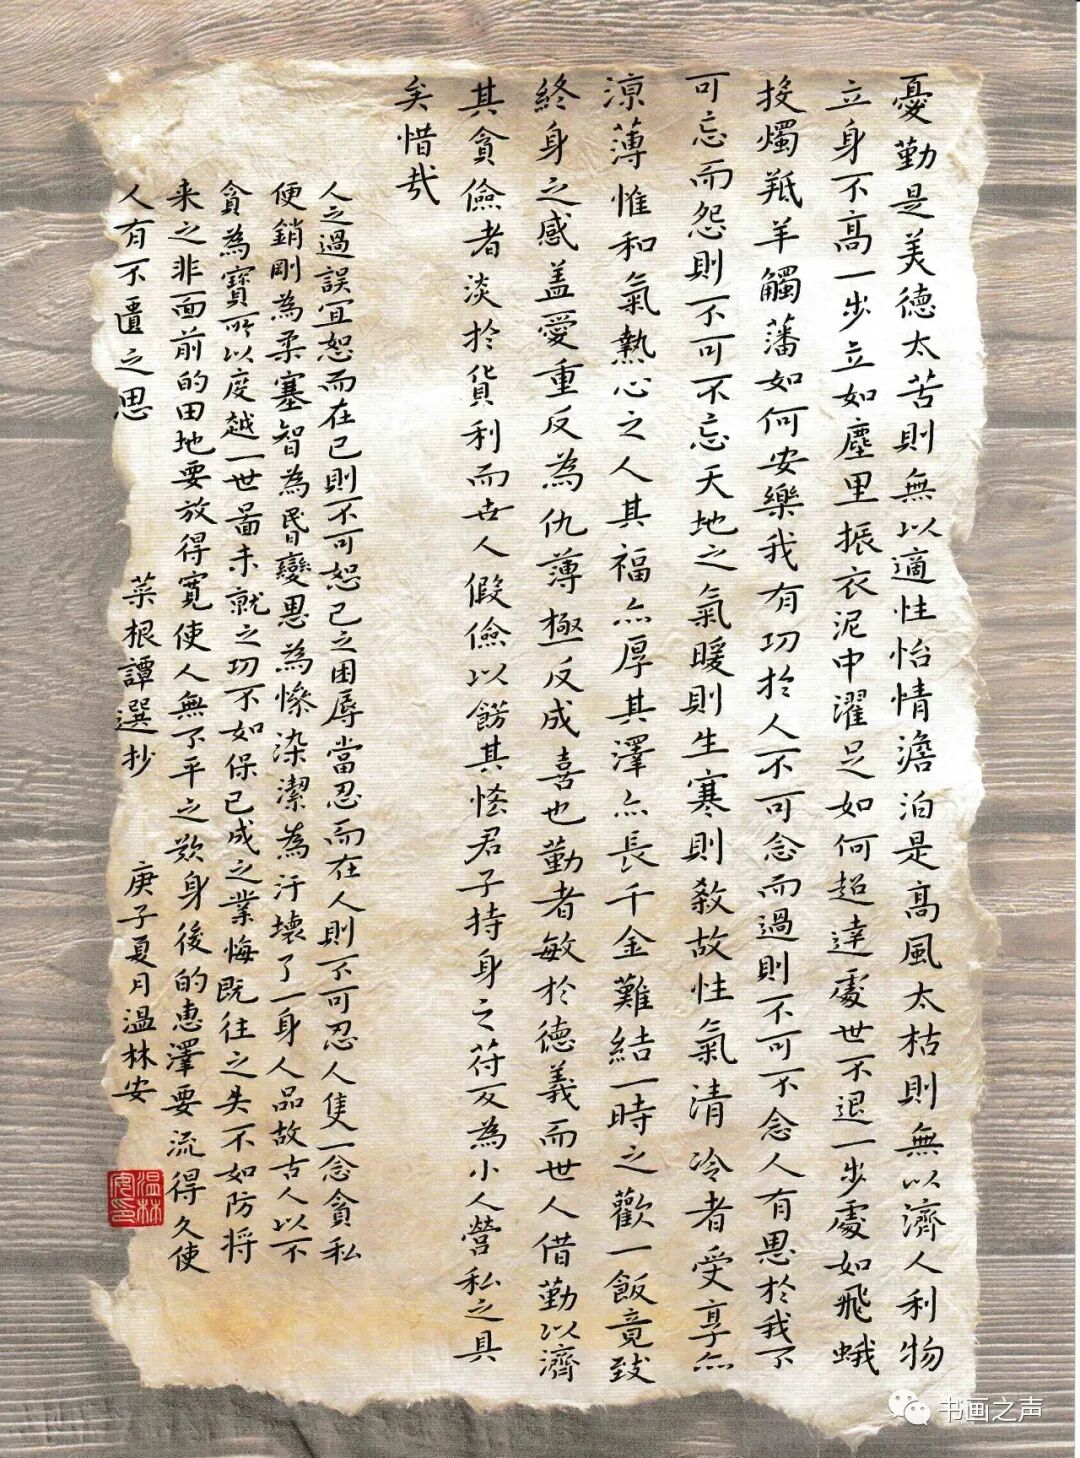 憂勤是美德太苦則無以適性怡情澹泊是高風太枯則無以濟人利物
立身不高一步立如塵里振衣泥中濯足如何超達處世不退一步處如飛蛾
投燭羝羊觸藩如何安樂我有功於人不可念而過則不可不念人有恩於我不
可忘而怨則不可不忘天地之氣暖則生寒則殺故性氣清冷者受享亦
涼薄惟和氣熱心之人其福亦厚其澤亦長千金難結一時之歡一飯竟致
終身之感盖愛重反為仇薄極反成喜也勤者敏於德義而世人借勤以濟
其貪儉者淡於貨利而世人假儉以飾其慳君子持身之苻反為小人營私之具
矣惜哉
人之過誤宜恕而在己則不可恕己之困辱當忍而在人則不可忍人隻一念貪私
便銷剛為柔塞智為昏變恩為慘染潔為汙壞了一身人品故古人以不
貪為寶所以度越一世圖未就之功不如保已成之業悔既往之失不如防将
来之非面前的田地要放得寬使人無不平之歎身後的惠澤要流得久使
人有不匱之思
菜根譚選抄 庚子夏月温林安
温林安印
书画之声